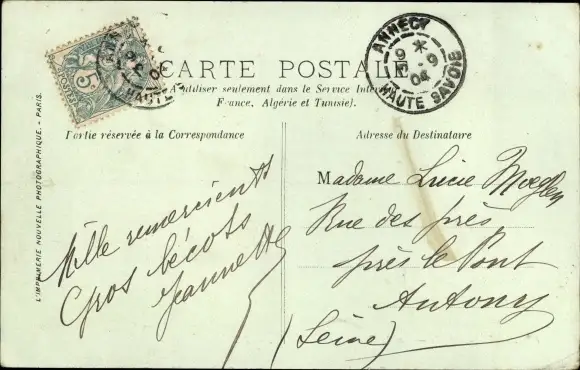 CARTE POSTALE
A utiliser seulement dans le Service Intérieur
France, Algérie et Tunisie).
ANNECY
9 *
9
04
HAUTE SAVOIE
POSTES
5
HAUTE
Partie réservée à la Correspondance
Adresse du Destinataire
L'IMPRIMERIE NOUVELLE PHOTOGRAPHIQUE - PARIS.
Mille remerciements
Gros bécots
Jeannette
Madame Lucie
Rue des près
près le Pont
Antony
(Seine)